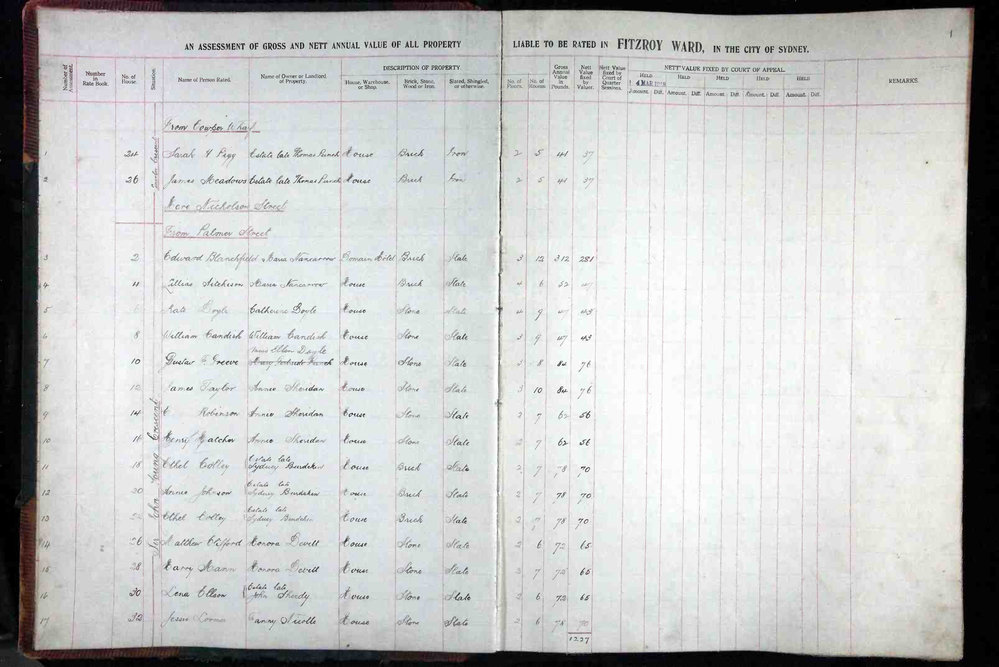 1
AN ASSESSMENT OF GROSS AND NETT ANNUAL VALUE OF ALL PROPERTY LIABLE TO BE RATED IN FITZROY WARD, IN THE CITY OF SYDNEY.
DESCRIPTION OF PROPERTY. NETT VALUE FIXED BY COURT OF APPEAL.
Number of Assessment. Number in Rate Book. No. of House. Situation Name of Person Rated. Name of Owner or Landlord of Property. House, Warehouse, or Shop. Brick, Stone, Wood or Iron. Slated, Shingled, or otherwise. No. of Floors. No. of Rooms. Gross Annual Value in Pounds. Nett Value fixed by Valuer. Nett Value fixed by Court of Quarter Sessions. HELD HELD HELD HELD HELD REMARKS.
MAR
Amount. Diff. Amount. Diff. Amount. Diff. Amount. Diff. Amount. Diff.
From Cowper Wharf
1 24 Sarah Y Pigg Estate late Thomas Punch House Brick Iron 2 5 41 37
2 26 James Meadows Estate late Thomas Punch House Brick Iron 2 5 41 37
Here Nicholson Street
From Palmer Street
3 2 Edward Blanchfield Maria Nancarrow Domain Hotel Brick Slate 3 12 312 281
4 4 Lillias Aitchison Maria Nancarrow House Brick Slate 4 6 52 47
5 6 Kate Doyle Catherine Doyle House Stone Slate 4 9 47 43
6 8 William Candish William Candish House Stone Slate 3 9 47 43
Miss Ellen Doyle
7 10 Gustav F. Greeve House Stone Slate 3 8 84 76
8 12 James Taylor Annie Sheridan House Stone Slate 3 10 84 76
9 14 Robinson Annie Sheridan House Stone Slate 2 7 62 56
10 16 Henry Hatcher Annie Sheridan House Stone Slate 2 7 62 56
Sir John Young Crescent
Estate late
11 18 Ethel Colley Sydney Burdekin House Brick Slate 2 7 78 70
Estate late
12 20 Annie Johnson Sydney Burdekin House Brick Slate 2 7 78 70
Estate late
13 22 Ethel Colley Sydney Burdekin House Brick Slate 2 7 78 70
14 26 Matthew Clifford Honora Devitt House Stone Slate 2 6 72 65
15 28 Harry Mann Honora Devitt House Stone Slate 2 7 72 65
Estate late
16 30 Lena Ellson John Sheedy House Stone Slate 2 6 72 65
17 32 Jessie Fanny Nicolle House Stone Slate 2 6 78 70
1237